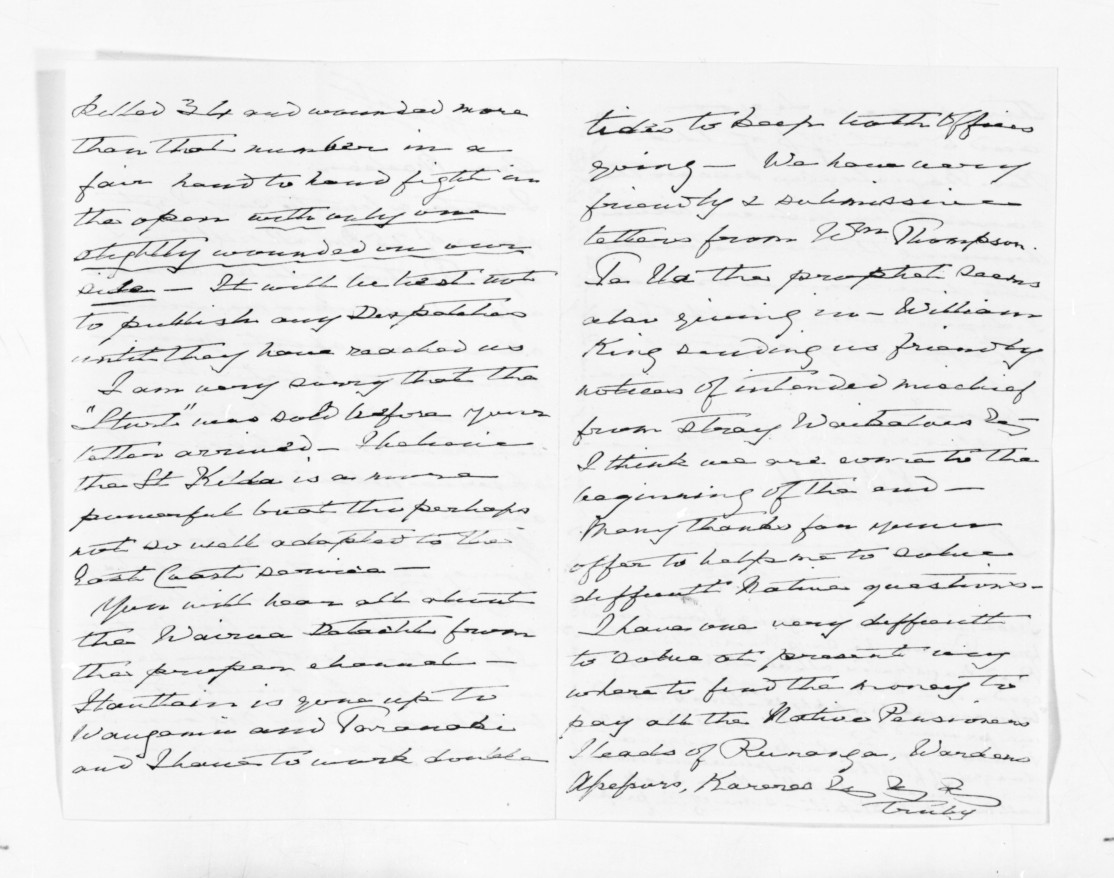 killed 34 and wounded more
than that number in a
fair hand to hand fight in
the open with only one
slightly wounded on our
side – It will be best not
to publish any Despatches
until they have reached us
I am very sorry that the
"Sturt" was sold before your
letter arrived – I believe
the St Kilda is a more
powerful boat tho perhaps
not so well adapted to the
East Coast service –
You will hear all about
the Wairoa from
the proper channel –
Haultain is gone up to
Wanganui and Taranaki
and I have to work double
tides to keep both Offices
going – We have very
friendly & submissive
letters from Wm Thompson.
Te Ua the prophet seems
also giving in – William
King sending us friendly
notices of intended mischief
from stray Waikatoes &c
I think we are come to the
beginning of the end –
Many thanks for your
offer to help me to solve
difficult Native questions –
I have one very difficult
to solve at present viz
where to find the money to
pay all the Native Pensioners
Heads of Runanga, Wardens
Assessors, Kareres &c &c &c
Truly